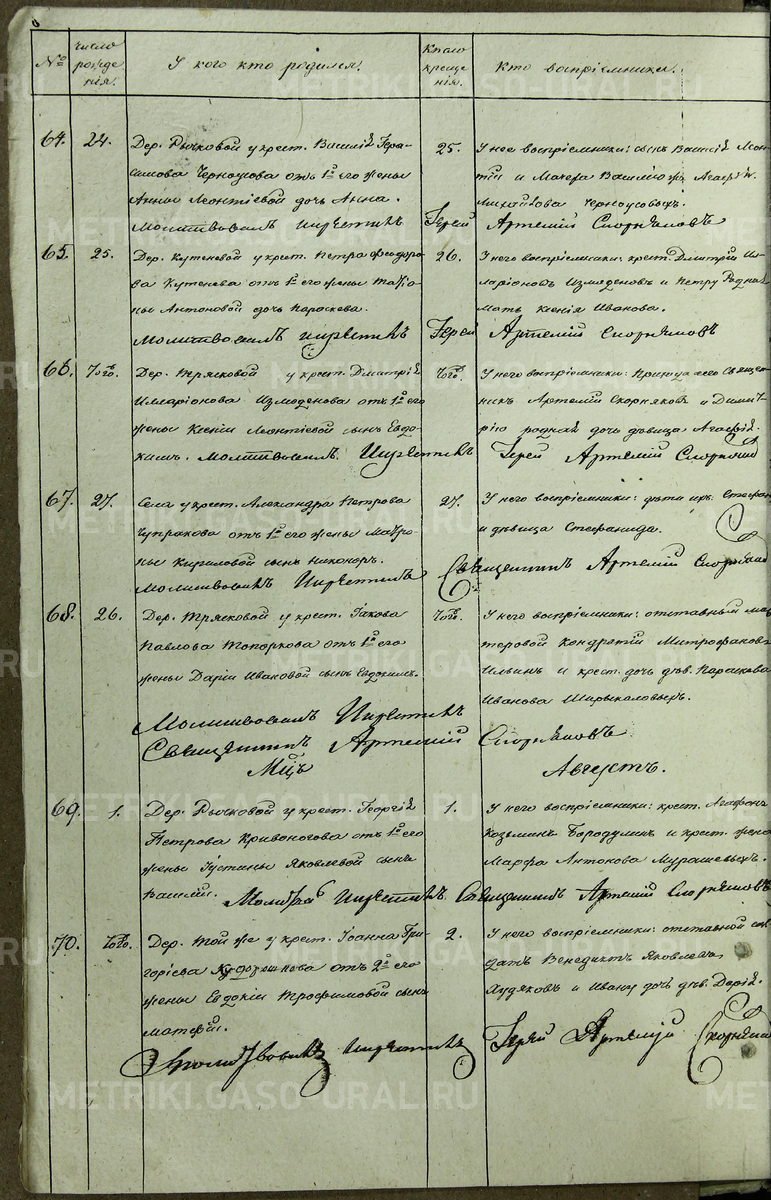 №
число рожденія.
У кого кто родился.
Число крещенія.
Кто воспріемники.
64. 24. Дер. Рычковой у крест. Василія Гера-
симова Черноусова отъ 1й его жены
Анны Леонтіевой дочь Анна.
Молитвовалъ и крестилъ
25. У нее воспріемники: сынъ Василій Леон-
тій и
Михайлова Черноусовыхъ.
Іерей Артемій Скорняковъ
65. 25. Дер. Кутеневой у крест. Петра Феодоро-
ва Кутенева отъ 1й его жены Татія-
ны Антоновой дочь Параскева.
Молитвовалъ и крестилъ
26. У него воспріемники: крест. Дмитрій Ил-
ларіоновъ Измоденовъ и Петру Родная
мать Ксенія Иванова.
Іерей Артемій Скорняковъ
66. Тогоᲂ. Дер. Трясковой у крест. Дмитрія
Илларіонова Измоденова отъ 1й его
жены Ксеніи Леонтіевой сынъ Евдо-
кимъ. Молитвовалъ и крестилъ
Тогоᲂ. У него воспріемники: Прихода сего Священ-
никъ Артемій Скорняковъ и Дмит-
рію родная дочь дѣвица Агафія.
Іерей Артемій Скорняковъ
67. 27. Села у крест. Александра Петрова
Чупракова отъ 1й его жены Матро-
ны Кириловой сынъ Никоноръ.
Молитвовалъ и крестилъ
27. У него воспріемники: дѣти ихъ: Стефанъ
и дѣвица Стефанида.
Священникъ Артемій Скорняковъ
68. 26. Дер. Трясковой у крест. Іакова
Павлова Топоркова отъ 1й его
жены Даріи Ивановой сынъ Евдокимъ.
Молитвовалъ и крестилъ
Священникъ Артемій Скорняковъ
У него воспріемники: отставный мас-
теровой Кондратій Митрофановъ
Ильинъ и крест. дочь дѣв. Параскева
Иванова Ширыкаловыхъ.
Мцъ Августъ.
69. 1. Дер. Рычковой у крест. Георгія
Петрова Кривоногова отъ 1й его
жены Іустины Яковлевой сынъ
Василій. Молитвов и крестилъ Священникъ Артемій Скорняковъ
1. У него воспріемники: крест. Агафонъ
Козьминъ Бородулинъ и крест. жена
Марфа Антонова Мурашевыхъ.
70. Дер. той же у крест. Іоанна Гри-
горіева отъ 2й его
жены Евдокіи Трофимовой сынъ
Матфій.
Молитвовалъ и крестилъ
2. У него воспріемники: отставной сол-
датъ Венедиктъ Яковлевъ
Худяковъ и Ивану дочь дѣв. Дарія.
Іерей Артемій Скорняковъ
METRIKI.GASO-URAL.RU